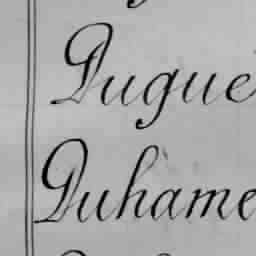 Dugue
Duhame